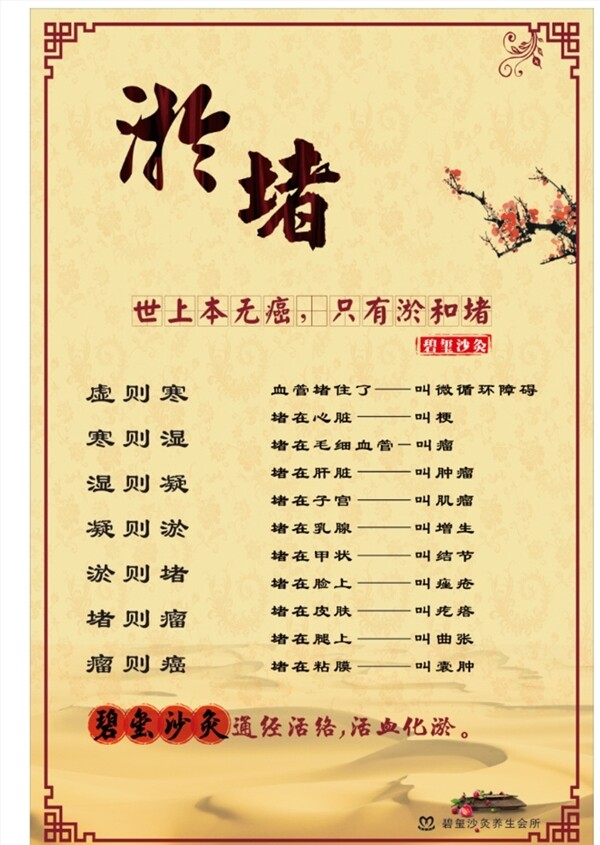 淤堵
世上本无癌，只有淤和堵
碧玺沙灸
虚则寒
寒则湿
湿则凝
凝则淤
淤则堵
堵则瘤
瘤则癌
血管堵住了——叫微循环障碍
堵在心脏——叫梗
堵在毛细血管-叫瘤
堵在肝脏——叫肿瘤
堵在子宫——叫肌瘤
堵在乳腺——叫增生
堵在甲状——叫结节
堵在脸上——叫痤疮
堵在皮肤——叫疙瘩
堵在腿上——叫曲张
堵在粘膜——叫囊肿
碧玺沙灸通经活络,活血化淤。
碧玺沙灸养生会所